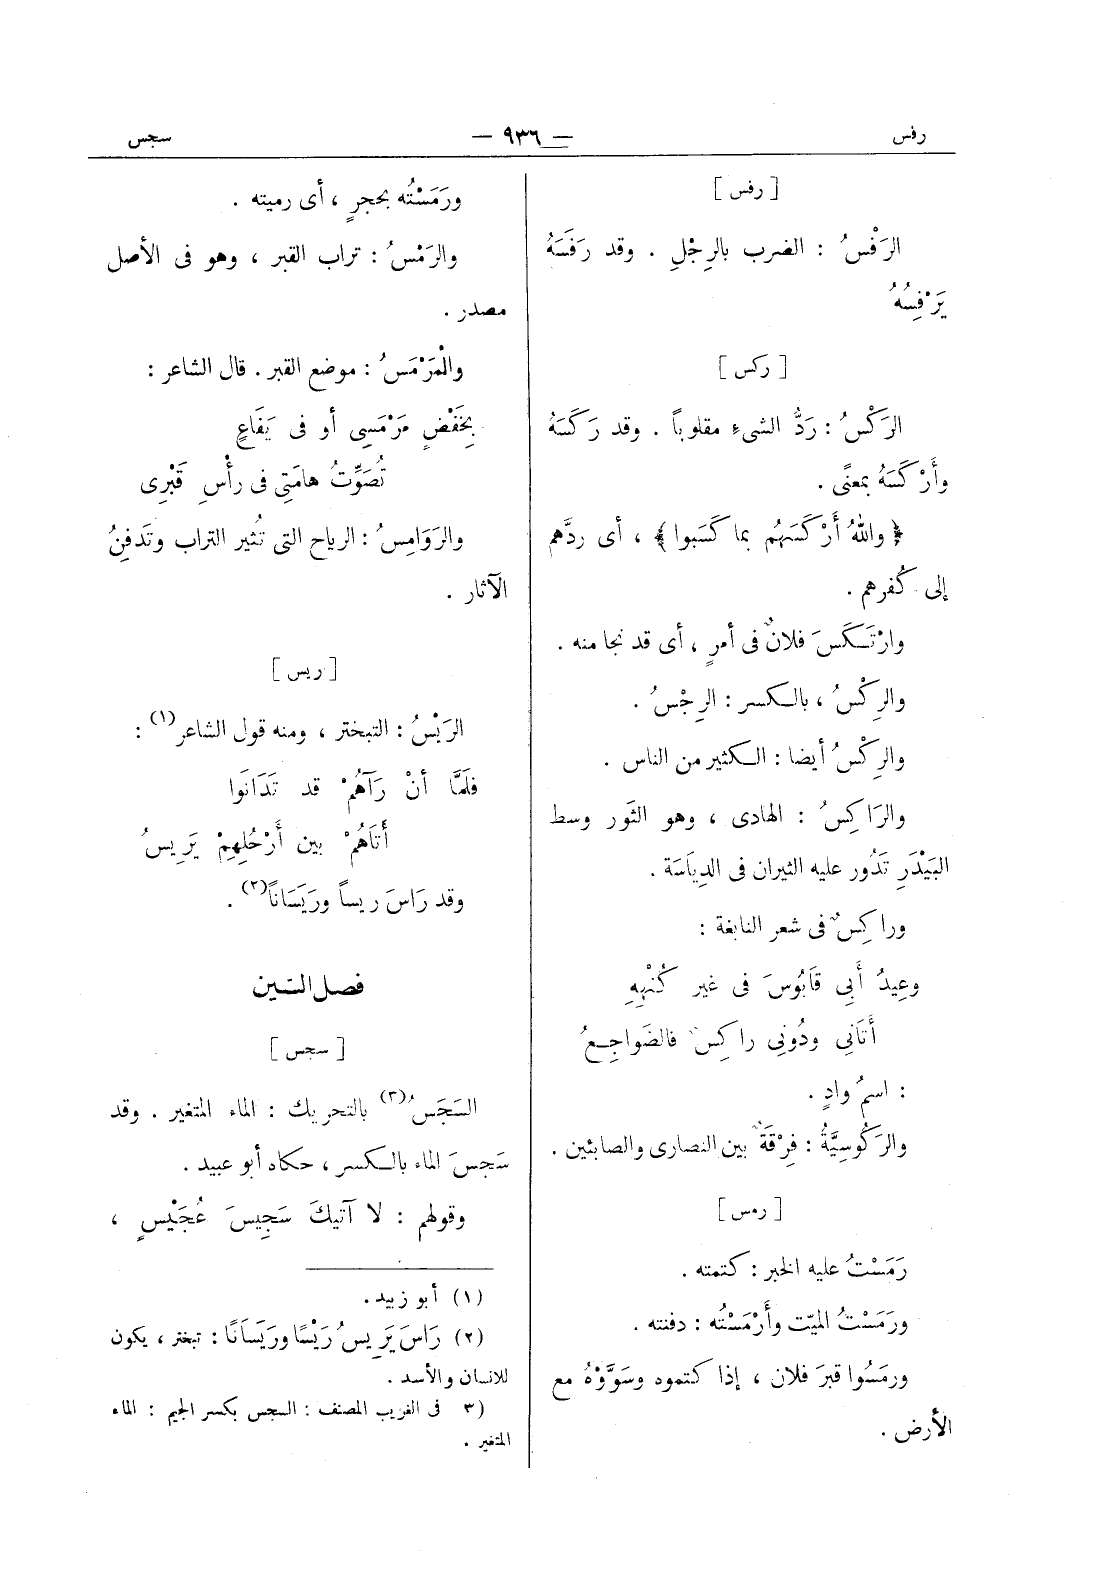 رفس
— ٩٣٦ —
سجس
[ رفس ]
الرَفْسُ : الضرب بالرِجْلِ . وقد رَفَسَهُ
يَرْفِسُهُ
[ ركس ]
الرَكْسُ : رَدُّ الشىءِ مقلوباً . وقد رَكَسَهُ
وأَرْكَسَهُ بمعنًى .
﴿ واللهُ أَرْكَسَهُم بما كَسَبوا ﴾ ، أى ردَّهم
إلى كُفرهم .
وارْتَكَسَ فلانٌ فى أمرٍ ، أى قد نجا منه .
والرِكْسُ ، بالكسر : الرِجْسُ .
والرِكْسُ أيضا : الكثير من الناس .
والرَاكِسُ : الهادى ، وهو الثَور وسط
البَيْدَرِ تَدُور عليه الثيران فى الدِيَاسَة .
وراكِسٌ فى شعر النابغة :
وعِيدُ أَبِى قَابُوسَ فى غير كُنْهِهِ
أَتَانِى ودُونِى راكِسٌ فالضَواجِعُ
: اسمُ وادٍ .
والرَكُوسِيَّةُ : فِرْقَةٌ بين النصارى والصابئين .
[ رمس ]
رَمَسْتُ عليه الخبر : كتمته .
ورَمَسْتُ الميّت وأَرْمَسْتُه : دفنته .
ورمَسُوا قبرَ فلان ، إذا كتموه وسَوَّوْهُ مع
الأرض .
ورَمَسْتُه بحجرٍ ، أى رميته .
والرَمْسُ : تراب القبر ، وهو فى الأصل
مصدر .
والْمَرْمَسُ : موضع القبر . قال الشاعر :
بِخَفْضٍ مَرْمَسِى أو فى يَفَاعٍ
تُصَوِّتُ هامَتِى فى رأْسِ قَبْرِى
والرَوَامِسُ : الرياح التى تُثير التراب وتَدفِنُ
الآثار .
[ ريس ]
الرَيْسُ : التبختر ، ومنه قول الشاعر(١) :
فلَمَّا أنْ رَآهُمْ قد تَدَانَوا
أَتَاهُمْ بين أَرْحُلِهِمْ يَرِيسُ
وقد رَاسَ ريساً ورَيَسَاناً(٢) .
فصل السّين
[ سجس ]
السَجَسُ(٣) بالتحريك : الماء المتغير . وقد
سَجِسَ الماء بالكسر ، حكاه أبو عبيد .
وقولهم : لا آتيكَ سَجِيسَ عُجَيْسٍ ،
(١) أبو زبيد .
(٢) رَاسَ يَرِيسُ رَيْسًا ورَيَسَانًا : تبختر ، يكون
للانسان والأسد .
٣) فى الغريب المصنف : السجس بكسر الجيم : الماء
المتغير .